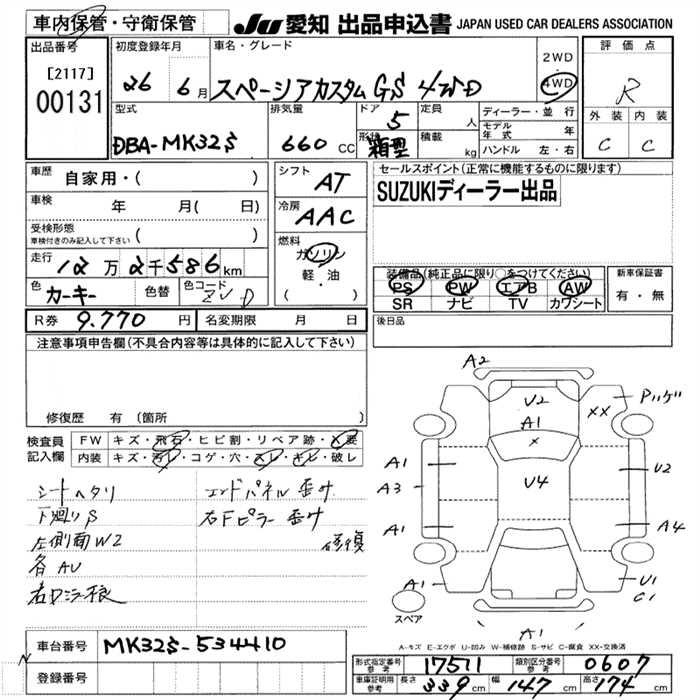 車内保管・守衛保管
JU 愛知 出品申込書 JAPAN USED CAR DEALERS ASSOCIATION
出品番号
[2117]
00131
初度登録年月
26 6月
車名・グレード
スペーシアカスタム GS 4WD
2WD・4WD
評価点
R
外装 内装
C C
型式
DBA-MK32S
排気量
660 CC
ドア 5
形状 箱型
定員 人
積載 kg
ディーラー・並行
モデル年式 年
ハンドル 左・右
車歴 自家用・( )
車検 年 月( 日)
受検形態
車検付きのみ記入して下さい ( )
走行 12万2千586km
色 カーキー 色替 色コード ZVD
R券 9.770円 名変期限 月 日
シフト AT
冷房 AAC
燃料 ガソリン
軽・油
( )
セールスポイント(正常に機能するものに限ります)
SUZUKIディーラー出品
装備品(純正品に限り○をつけてください)
PS PW エアB AW
SR ナビ TV カワシート
新車保証書
有・無
後日品
注意事項申告欄(不具合内容等は具体的に記入して下さい)
修復歴 有 (箇所
検査員記入欄
FW キズ・飛石・ヒビ割・リペア跡・X要
内装 キズ・汚レ・コゲ・穴・スレ・キレ・破レ
シートヘタリ
下廻りS
左側面W2
各AU
右ロッカー損
エンドパネル歪み
右Fピラー歪み
修復
A2
U2
A1
XX
Pハゲ
X
A1
A3
U4
U2
A1
A4
A1
U1
C1
A1
スペア
A-キズ E-エクボ U-凹み W-補修跡 S-サビ C-腐食 XX-交換済
車台番号 MK32S-534410
登録番号
N
形式指定番号 参考 17511 類別区分番号 参考 0607
車庫証明用 参考 長さ 339cm 幅 147cm 高さ 174cm